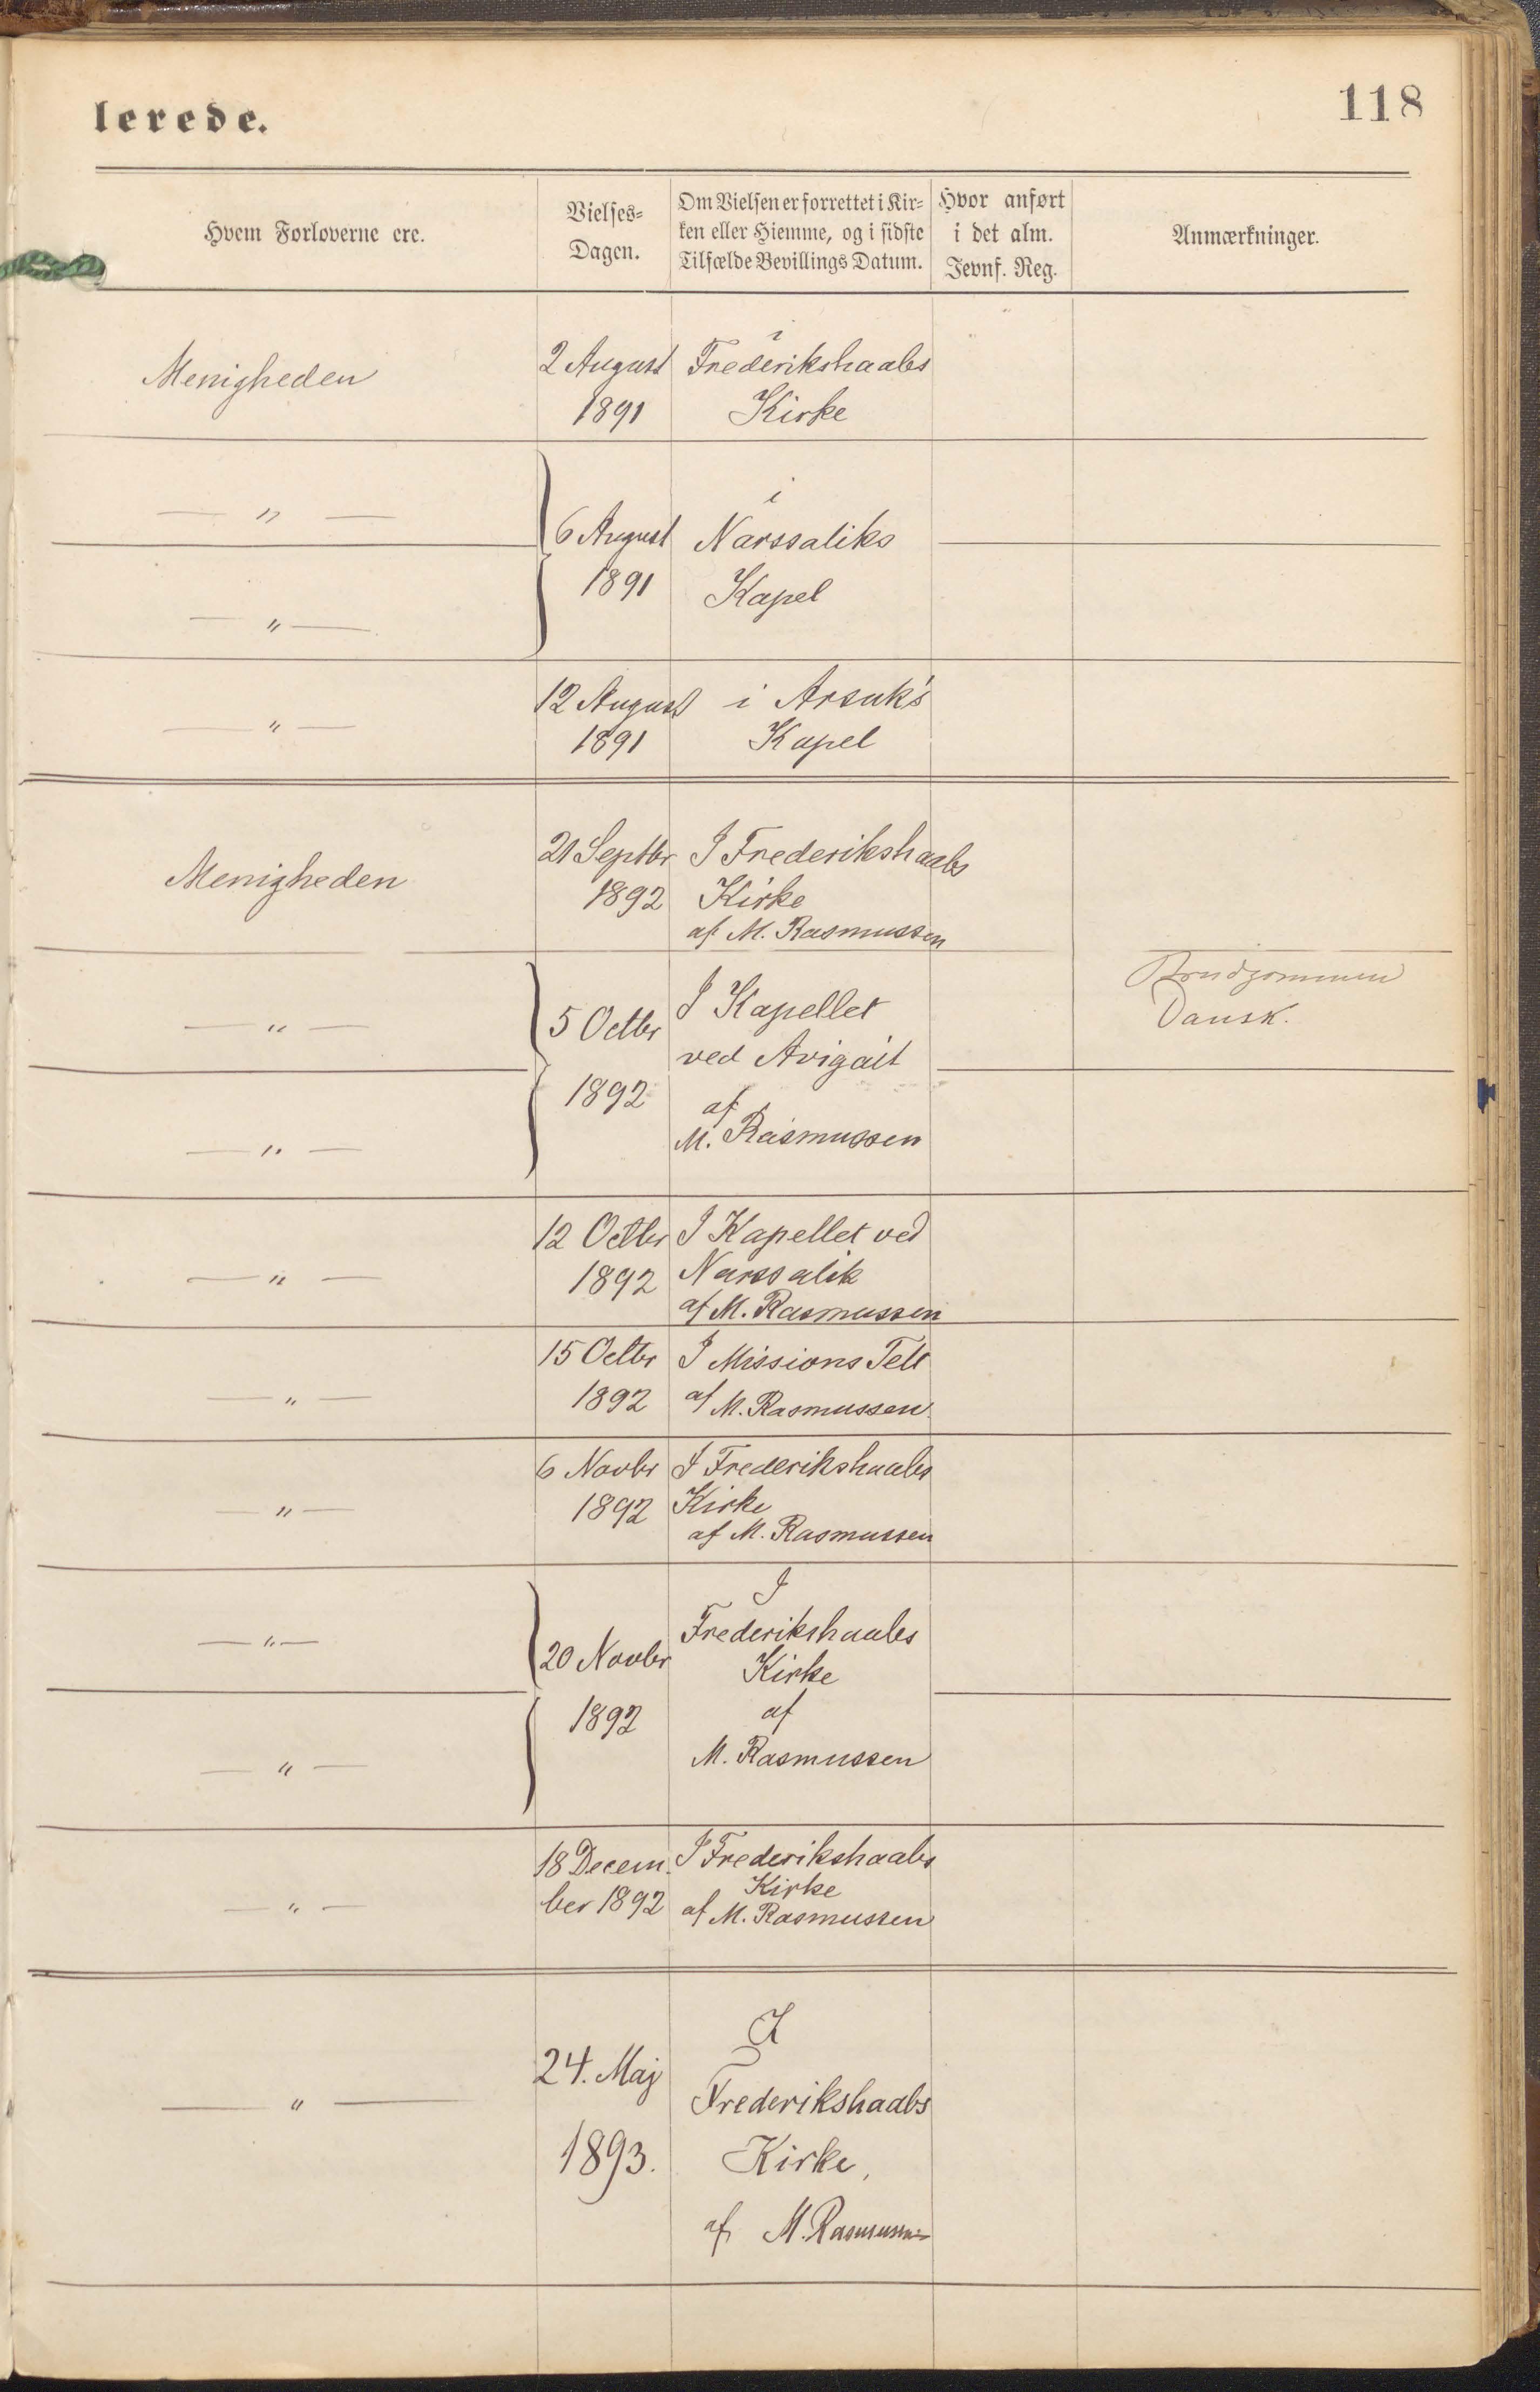 lerede.
118
Hvem Forloverne ere.
Vielses-
Dagen.
Om Vielsen er forrettet i Kir-
ken eller Hiemme, og i sidste
Tilfælde Bevillings Datum.
Hvor anført
i det alm.
Jevnf. Reg.
Anmærkninger.
Menigheden
2 August
1891
i
Frederikshaabs
Kirke
— " —
— " —
6 August
1891
i
Narssaliks
Kapel
— " —
12 August
1891
i Arsuk's
Kapel
Menigheden
21 Septbr
1892
I Frederikshaabs
Kirke
af M. Rasmussen
— " —
— " —
5 Octbr
1892
I Kapellet
ved Avigait
af
M. Rasmussen
Brudgommen
Dansk.
— " —
12 Octbr
1892
I Kapellet ved
Narssalik
af M. Rasmussen
— " —
15 Octbr
1892
I Missions Telt
af M. Rasmussen
— " —
6 Novbr
1892
I Frederikshaabs
Kirke
af M. Rasmussen
— " —
— " —
20 Novbr
1892
I
Frederikshaabs
Kirke
af
M. Rasmussen
— " —
18 Decem
ber 1892
I Frederikshaabs
Kirke
af M. Rasmussen
— " —
24. Maj
1893.
I
Frederikshaabs
Kirke,
af M. Rasmussen